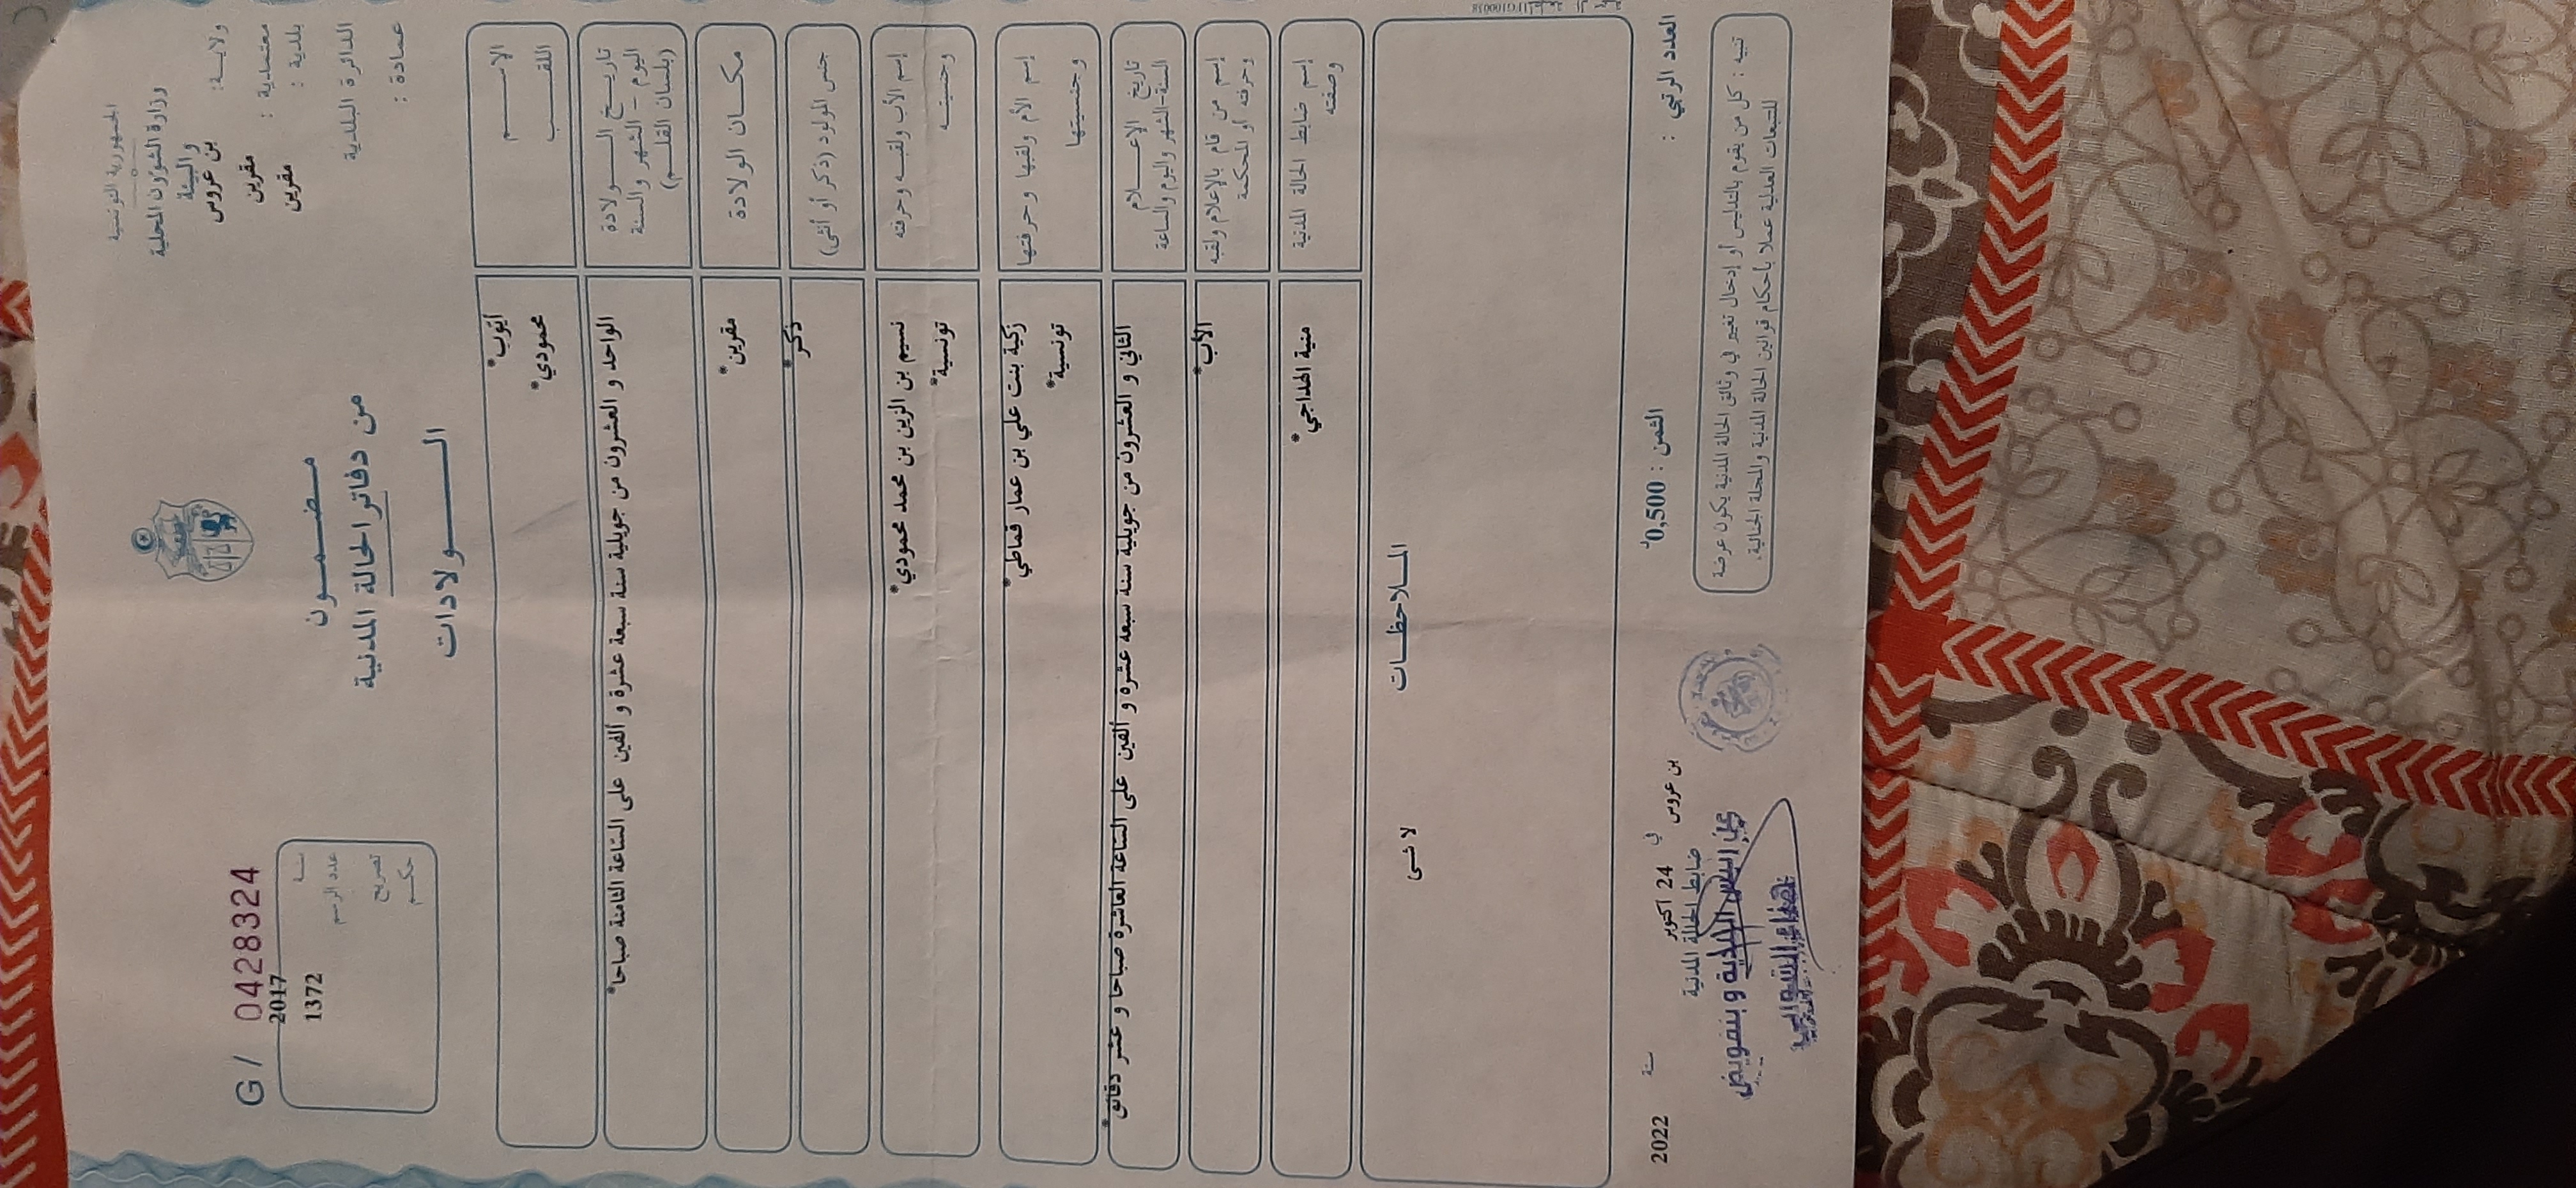 الجمهورية التونسية
وزارة الشؤون المحلية
والبيئة
ولاية: بن عروس
معتمدية : مقرين
بلدية : مقرين
الدائرة البلدية
عمادة :
مضمون
من دفاتر الحالة المدنية
الولادات
G/ 0428324
سنة 2017
عدد الرسم 1372
تصريح
حكم
الاسم أيوب*
اللقب محمودي*
تاريخ الولادة
اليوم - الشهر والسنة
(بلسان القلم)
الواحد و العشرون من جويلية سنة سبعة عشرة و ألفين على الساعة الثامنة صباحا*
مكان الولادة مقرين*
جنس المولود (ذكر أو أنثى) ذكر*
إسم الأب ولقبه وحرفته نسيم بن الزين بن محمد محمودي*
وجنسيته تونسية*
إسم الأم ولقبها وحرفتها زكية بنت علي بن عمار قماطي*
وجنسيتها تونسية*
تاريخ الإعلام
السنة-الشهر واليوم والساعة
الثاني و العشرون من جويلية سنة سبعة عشرة و ألفين على الساعة العاشرة صباحا و عشر دقائق*
إسم من قام بالإعلام ولقبه الأب*
وحرفته أو المحكمة
إسم ضابط الحالة المدنية منية الهداجي*
وصفته
الملاحظات
لا شئ
العدد الرتبي :
الثمن : 0,500د
بن عروس في 24 اكتوبر سنة 2022
ضابط الحالة المدنية
تنبيه : كل من يقوم بالتدليس أو إدخال تغيير في وثائق الحالة المدنية يكون عرضة
للتتبعات العدلية عملا بأحكام قوانين الحالة المدنية والمجلة الجنائية.